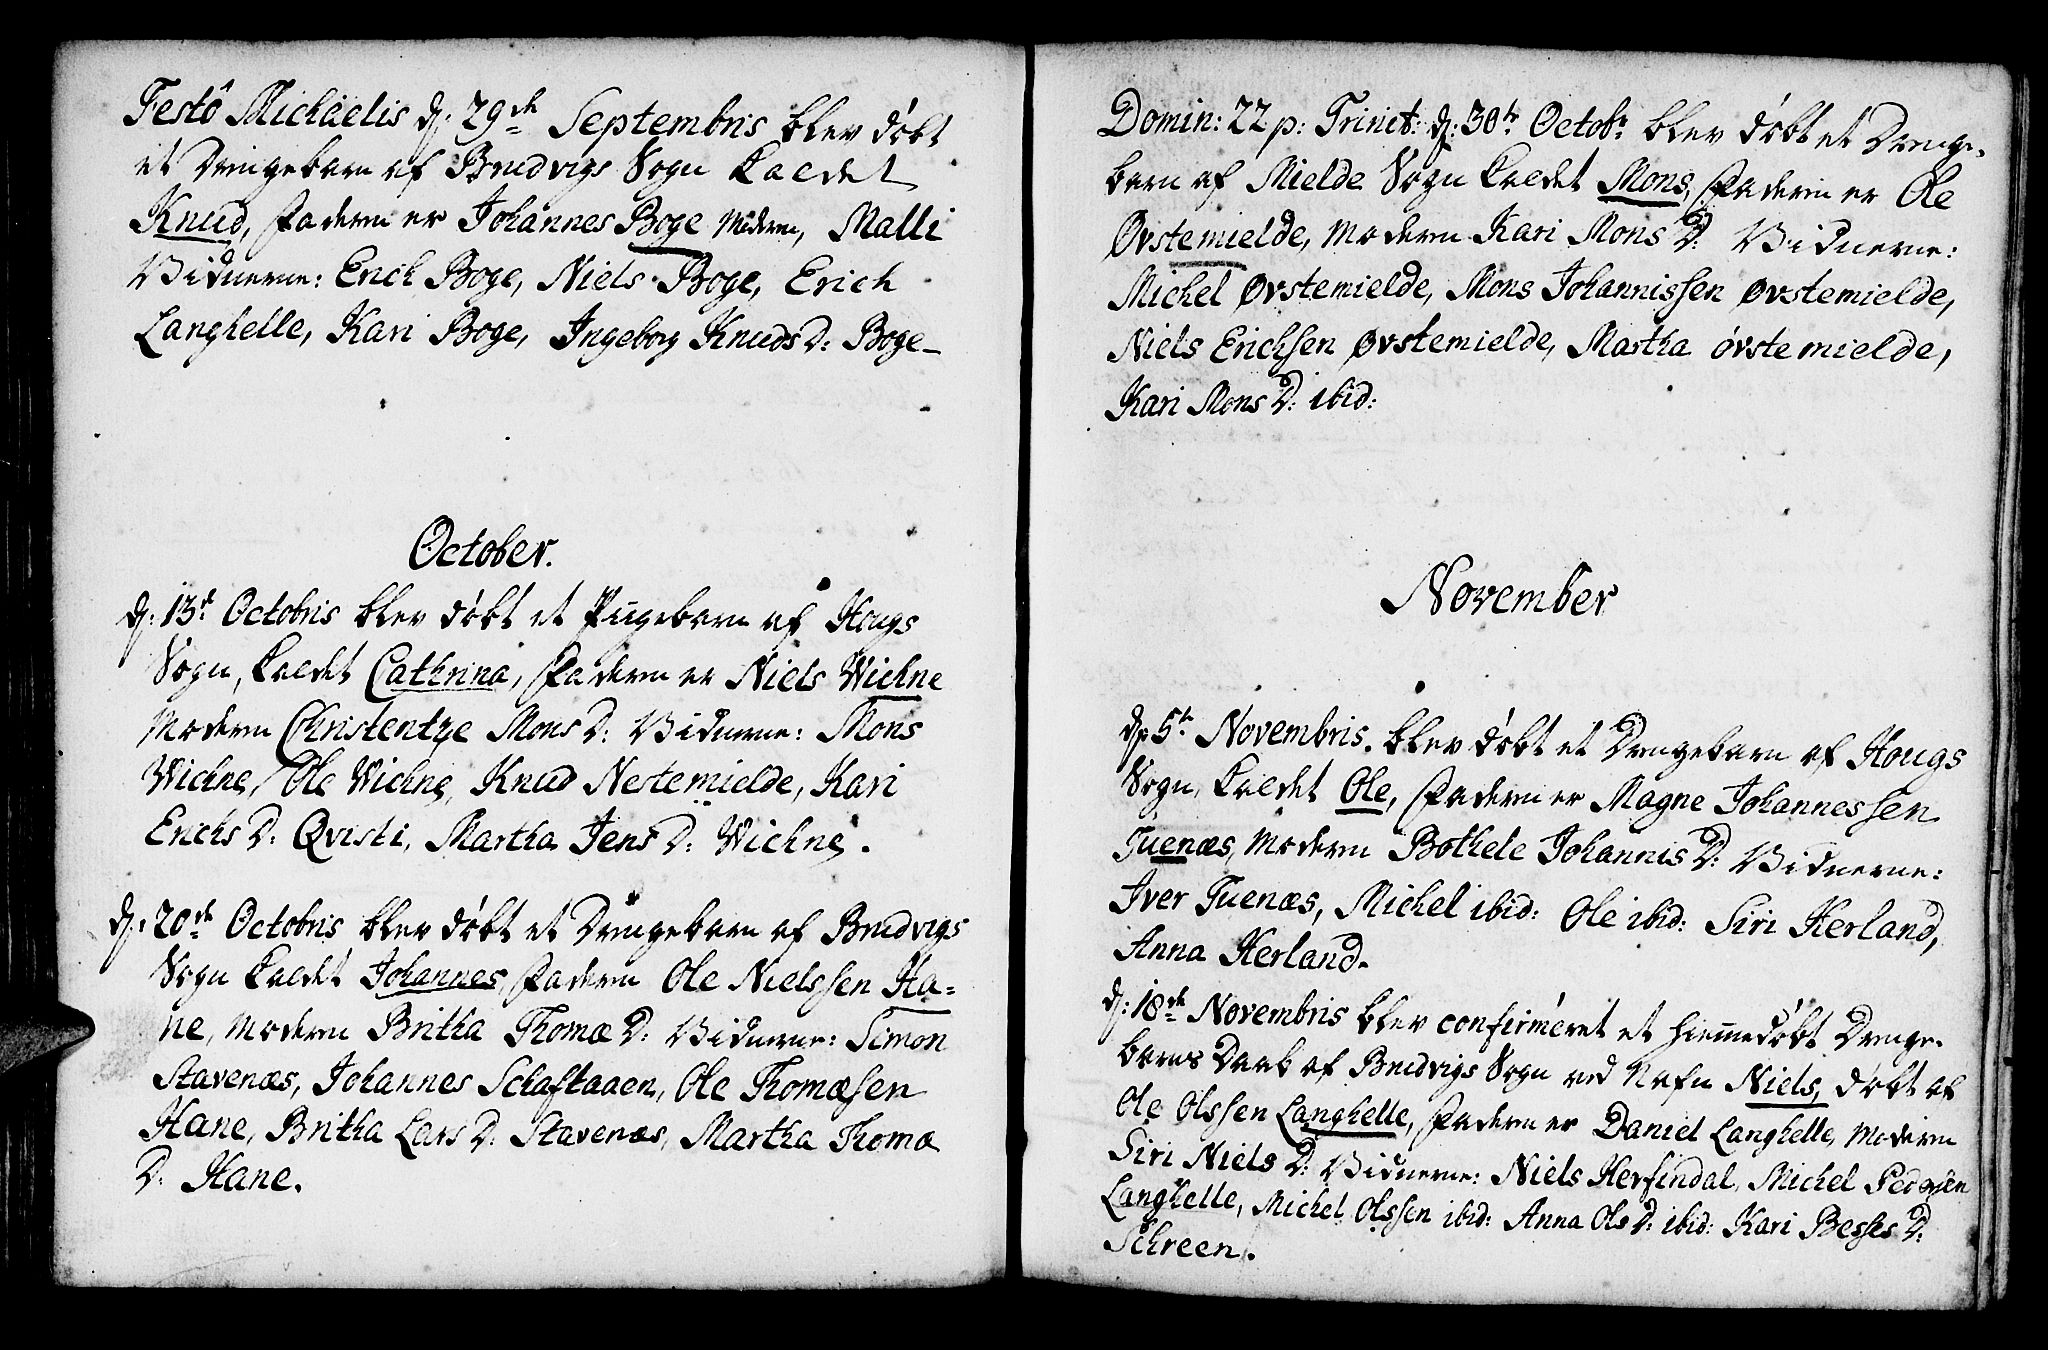 Festô Michäelis d: 29de Septembris blev döbt
et Drengebarn af Brudvigs Sogn kaldet
Knud, Faderen er Johannes Boge Moderen, Malli
Vidnerne: Erich Boge, Niels Boge, Erich
Langhelle, Kari Boge, Ingeborg Knuds D: Boge_
October.
d: 13de Octobris blev döbt et Pigebarn af Hougs
Sogn, kaldet Cathrina, Faderen er Niels Wichne
Moderen Christentze Mons D: Vidnerne: Mons
Wichne, Ole Wichne, Knud Nestemielde, Kari
Erichs D: Qvisti, Martha Jens D: Wichne.
d: 20de Octobris blev döbt et Drengebarn af Brudvigs
Sogn kaldet Johannes, Faderen Ole Nielssen Ha=
ne, Moderen Britha Thomæ D: Vidnerne: Simon
Stavenæs, Johannes Schaftaaen, Ole Thomæsen
Hane, Britha Lars D: Stavenæs, Martha Thomæ
D: Hane.
Domin: 22 p: Trinit: d: 30te Octobr blev döbt et Drenge-
barn af Mielde Sogn kaldet Mons, Faderen er Ole
Øvstemielde, Moderen Kari Mons D: Vidnerne:
Michel Øvstemielde, Mons Johannissen Øvstemielde,
Niels Erichsen Øvstemielde, Martha övstemielde,
Kari Mons D: ibid:
November
d: 5te Novembris. blev döbt et Drengebarn af Hougs
Sogn, kaldet Ole, Faderen er Magne Johannessen
Tuenæs, Moderen Bothele Johannis D: Vidnerne:
Iver Tuenæs, Michel ibid: Ole ibid: Siri Herland,
Anna Herland.
d: 18de Novembris blev confirmeret et hiemedöbt Drenge-
barns Daab af Brudvigs Sogn ved Nafn Niels, döbt af
Ole Olssen Langhelle, Faderen er Daniel Langhelle, Moderen
Siri Niels D: Vidnerne: Niels Herfindal, Michel Pedersen
Langhelle, Michel Olssen ibid: Anna Ols D: ibid: Kari Besses D:
Schreen.